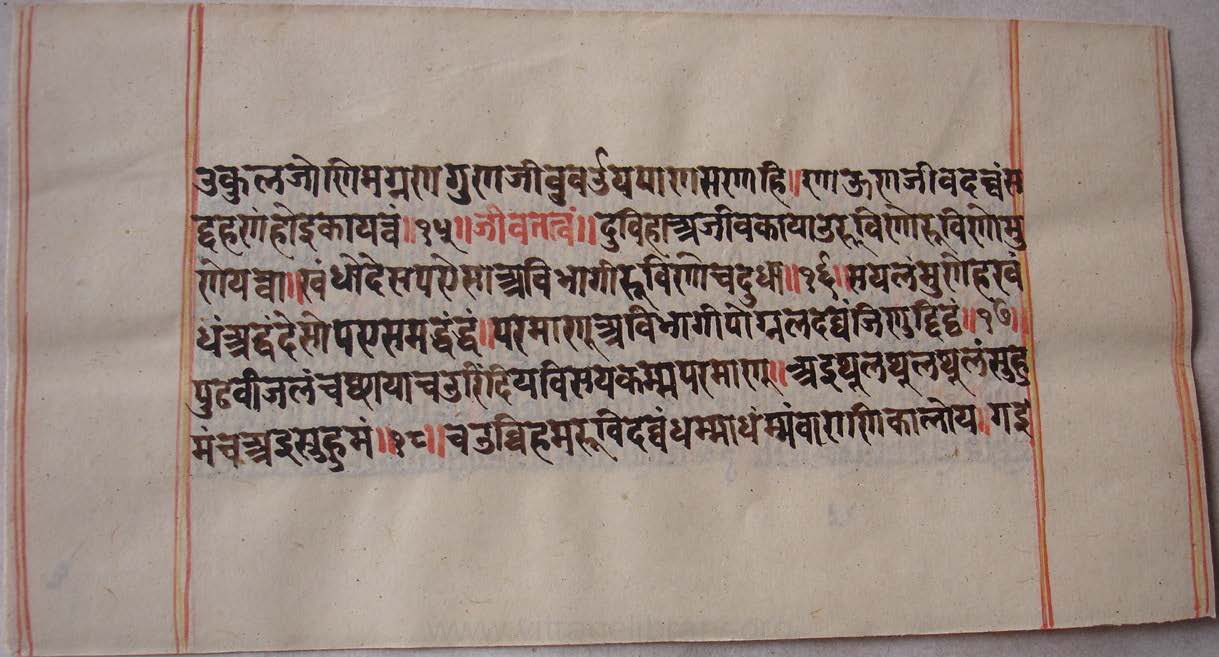 उकुलजोणिमग्गणगुणजीवुवउगपाणसणहि॥णाऊणजीवदव्वंस
द्दहणंहोइकायव्वं॥१५॥जीवतत्वं॥दुविहाअजीवकायाउरूविणोरूविणोमु
णेयव्वा॥खंधोदेसपएसाअविभागीरूविणोचदुधा॥१६॥सयलंमुणेहखं
धंअद्धंदेसोपएसमद्धंद्धं॥परमाणूअविभागीपोग्गलदव्वंजिणुद्दिट्ठं॥१७॥
पुढवीजलंचछायाचउरिंदियविसयकम्मपरमाणू॥अइथुलथुलथुलंसुहु
मंचअइसुहुमं॥१८॥चउव्विहमरूविदव्वंधम्माधंम्मंवाराणिकालोय।गइ